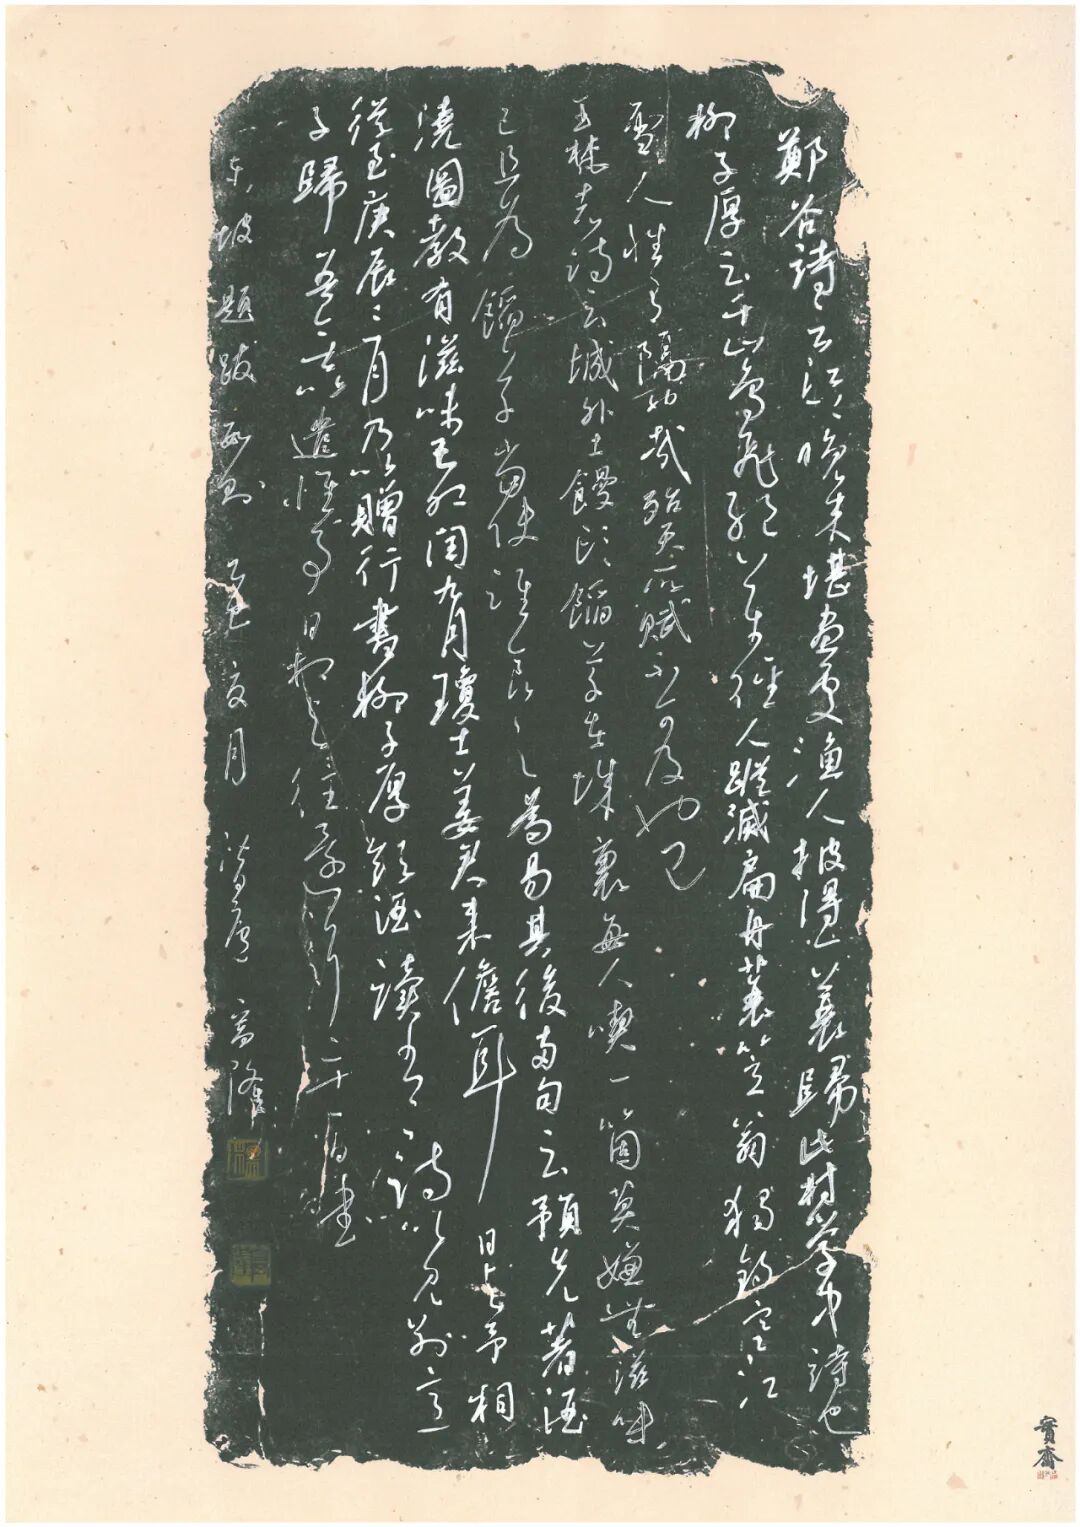 鄭谷詩云江上晚來堪畫處漁人披得一蓑歸此村學中詩也
柳子厚云千山鳥飛絕萬徑人蹤滅扁舟蓑笠翁獨釣寒江
雪人性有隔也哉殆天所賦不可及也已
王梵志詩云城外土饅頭餡草在城裏每人喫一箇莫嫌無滋味
己且為餡草當使誰食之為易其後兩句云預先著酒
澆圖教有滋味己卯閏九月瓊士姜君來儋耳日與予相
從至庚辰三月乃歸贈行書柳子厚飲酒讀書二詩以見別意
子歸吾無以遣懷日相與往還二子書
東坡題跋兩則 夏月
寶齋